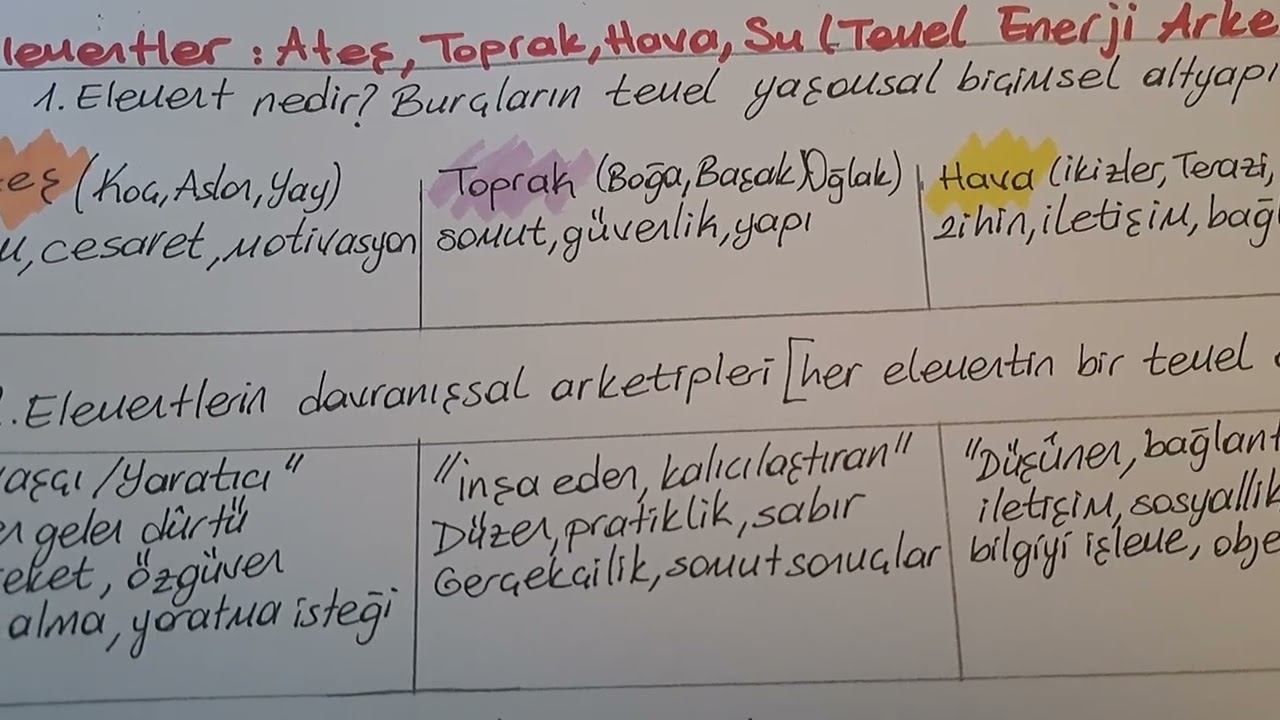 lementler : Ateş, Toprak, Hava, Su (Temel Enerji Arke
1. Element nedir? Burçların temel yaşamsal biçimsel altyapı
eş (Koç, Aslan, Yay)
u, cesaret, motivasyon
Toprak (Boğa, Başak, Oğlak)
somut, güvenlik, yapı
Hava (ikizler, Terazi,
zihin, iletişim, bağl
2. Elementlerin davranışsal arketipleri [her elementin bir temel
aşçı / Yaratıcı"
en gelen dürtü
eket, özgüven
alma, yaratma isteği
"inşa eden, kalıcılaştıran"
Düzen, pratiklik, sabır
Gerçekçilik, somut sonuçlar
"Düşünen, bağlant
iletişim, sosyallik
bilgiyi işleme, obje